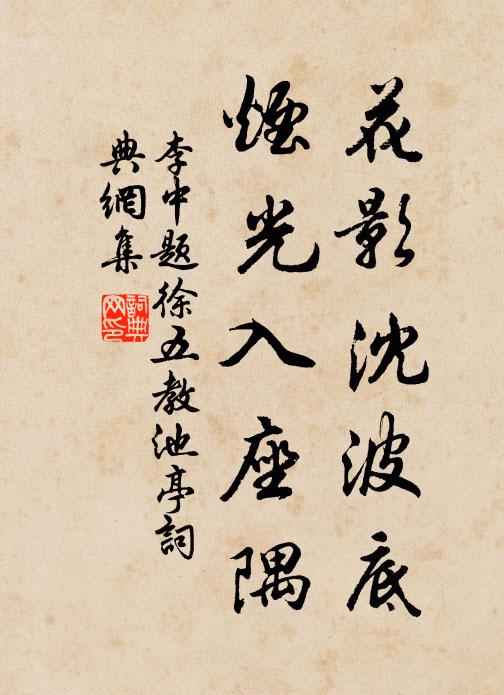 花影沈波底
煙光入座隅
李中題徐五教池亭詞
典網集
詞典網印